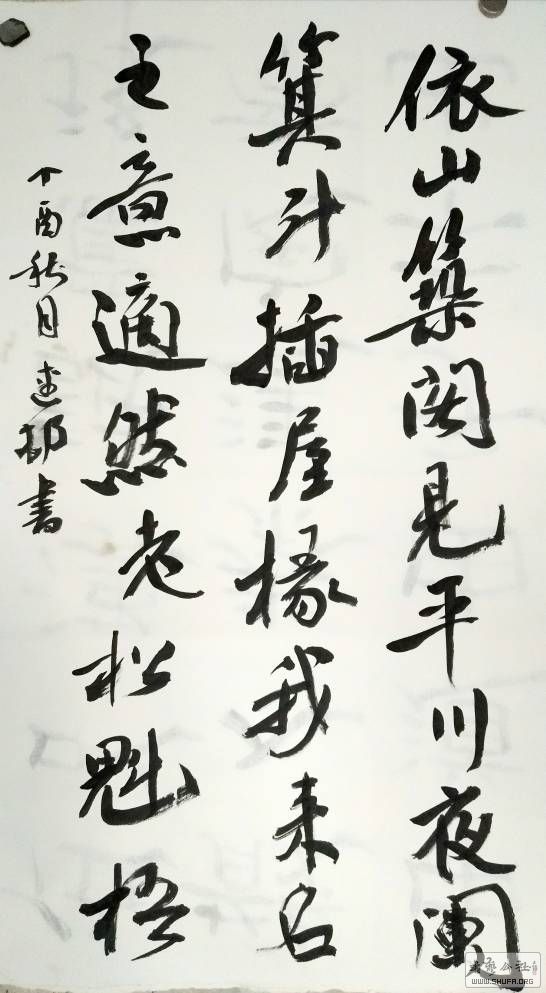 依山築閣見平川夜闌
箕斗插屋椽我來名
之意適然老松魁梧
丁酉秋月建郁書
WWW.SHUFA.ORG